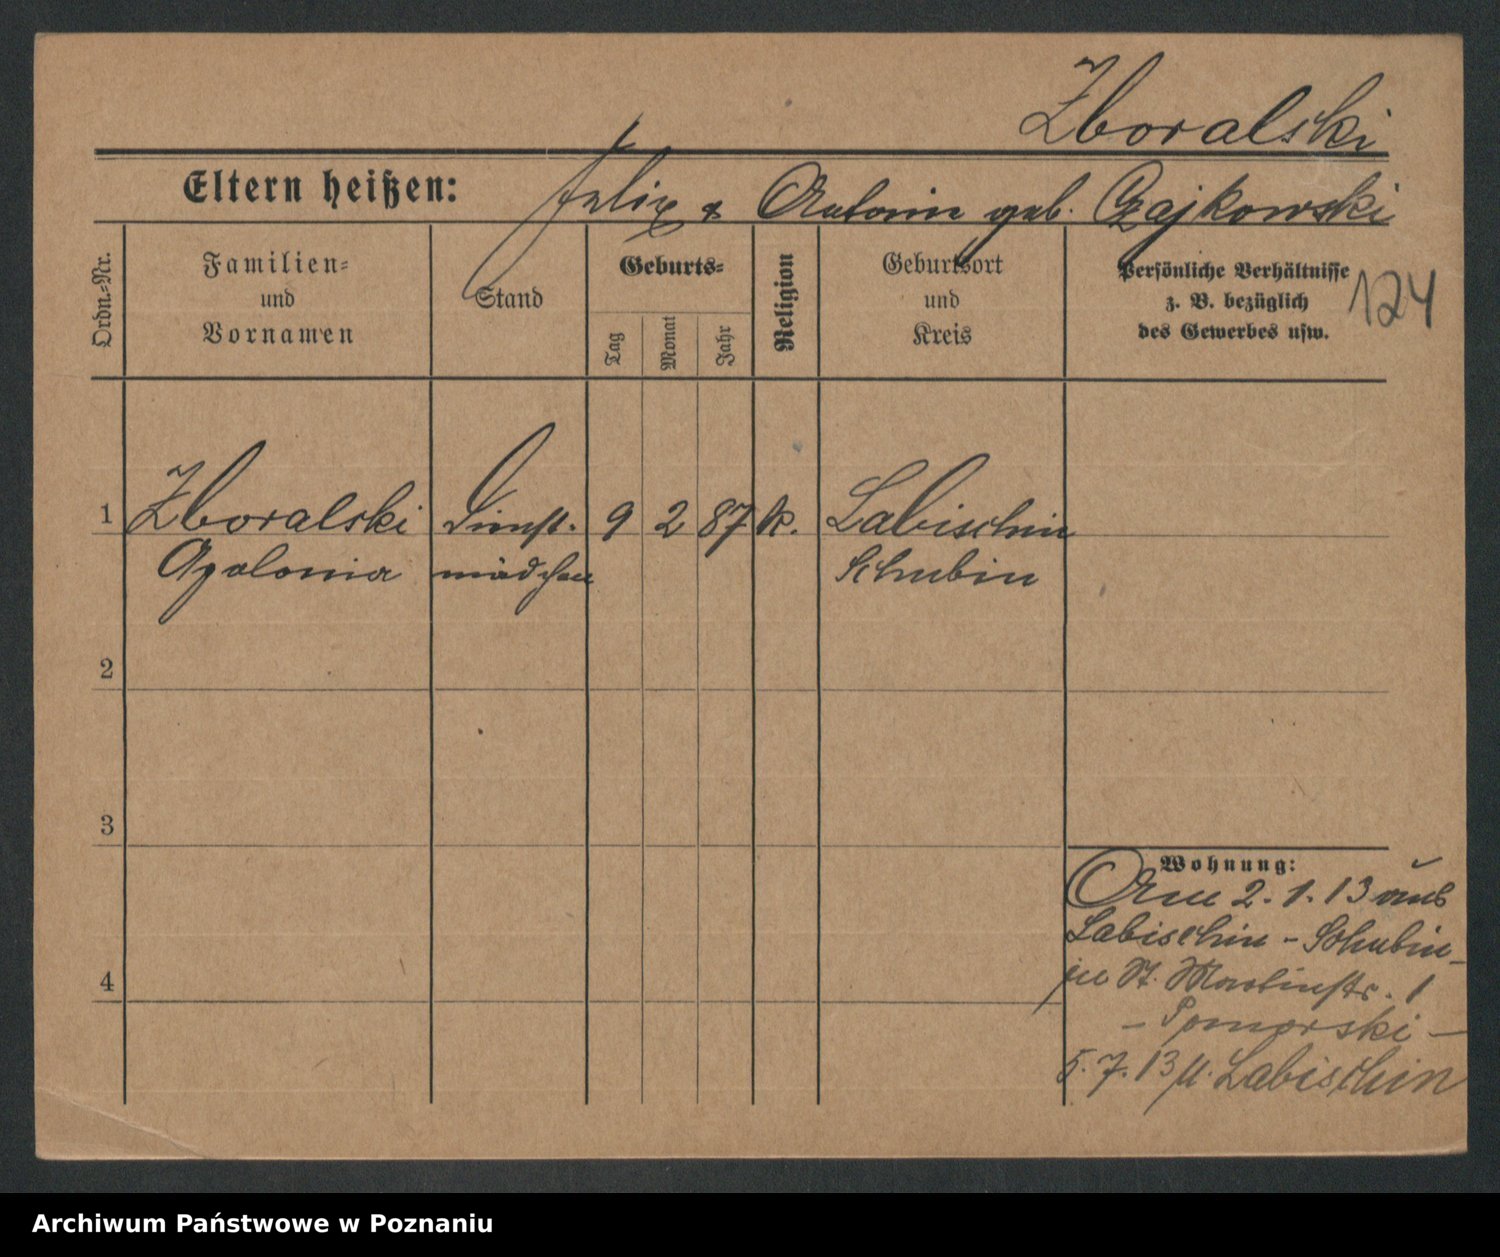 Zboralski
Eltern heißen: Felix & Antonin geb. Czajkowski
Ordn.-Nr.
Familien-
und
Vornamen
Stand
Geburts-
Tag
Monat
Jahr
Religion
Geburtsort
und
Kreis
Persönliche Verhältnisse
z. B. bezüglich
des Gewerbes usw.
124
1 Zboralski Dienst- 9 2 87 k. Labischin
Apolonia mädchen Schubin
2
3
4
Wohnung:
Am 2. 1. 13 aus
Labischin - Schubin -
in St. Martinstr. 1
- Pomorski -
5. 7. 13 n. Labischin
Archiwum Państwowe w Poznaniu